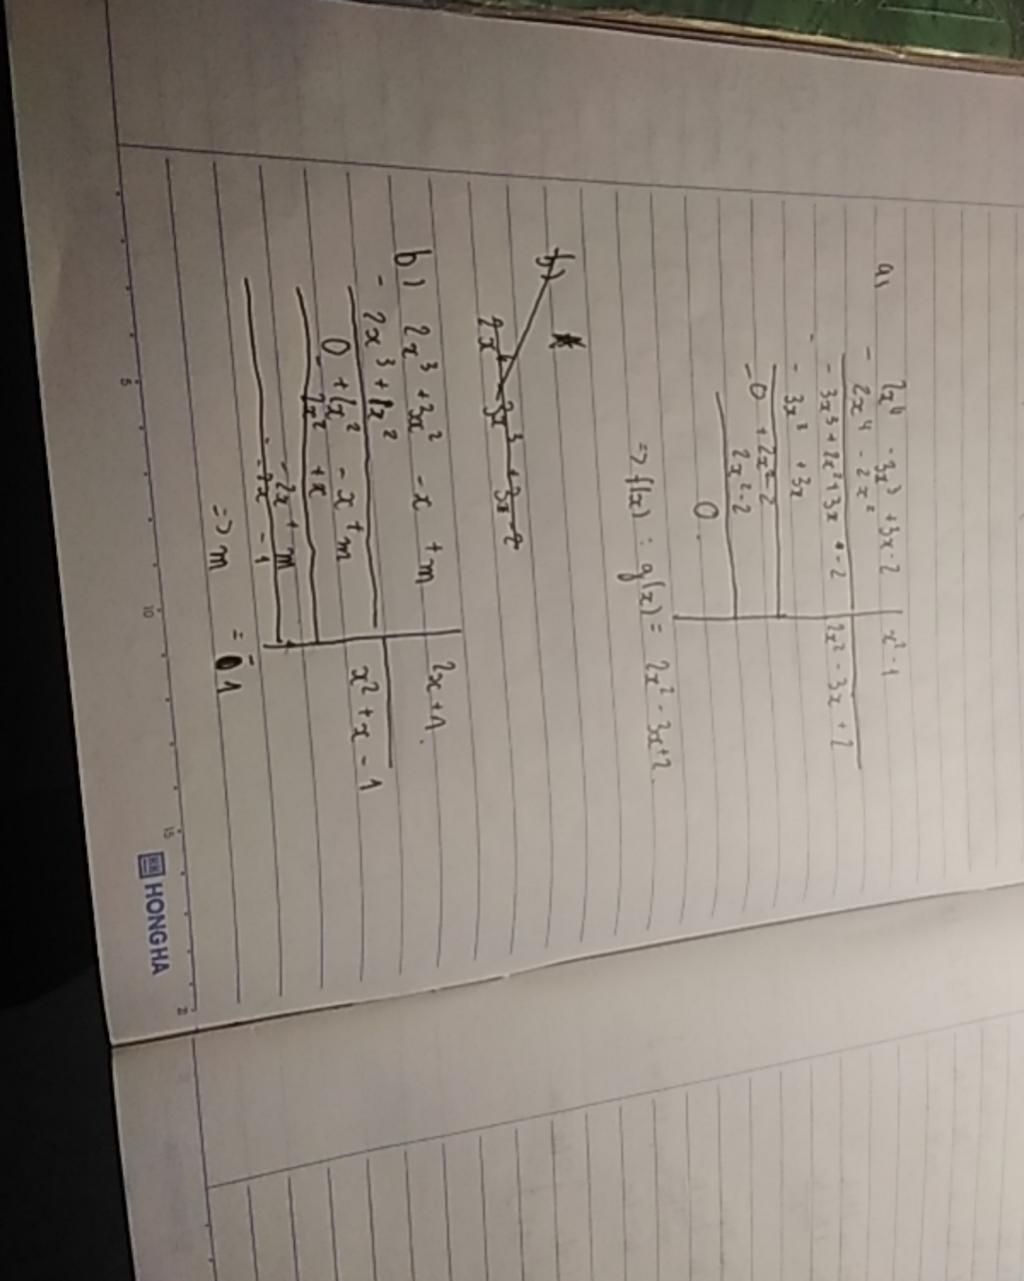 a,
2x⁴ - 3x³ + 3x - 2 | x² - 1
- 2x⁴ - 2x² | 2x² - 3x + 2
- 3x³ + 2x² + 3x + - 2
- - 3x³ + 3x
- 0 + 2x² - 2
2x² - 2
0.
=> f(x) : g(x) = 2x² - 3x + 2.
b)
2x⁴ - 3x³ + 3x - 2
b) 2x³ + 3x² - x + m | 2x + 1.
- 2x³ + 1x² | x² + x - 1
0 + 2x² - x + m
- 2x² + x
- 2x + m
- - 2x - 1
=> m = - 1
5 10 15 2
HONG HA